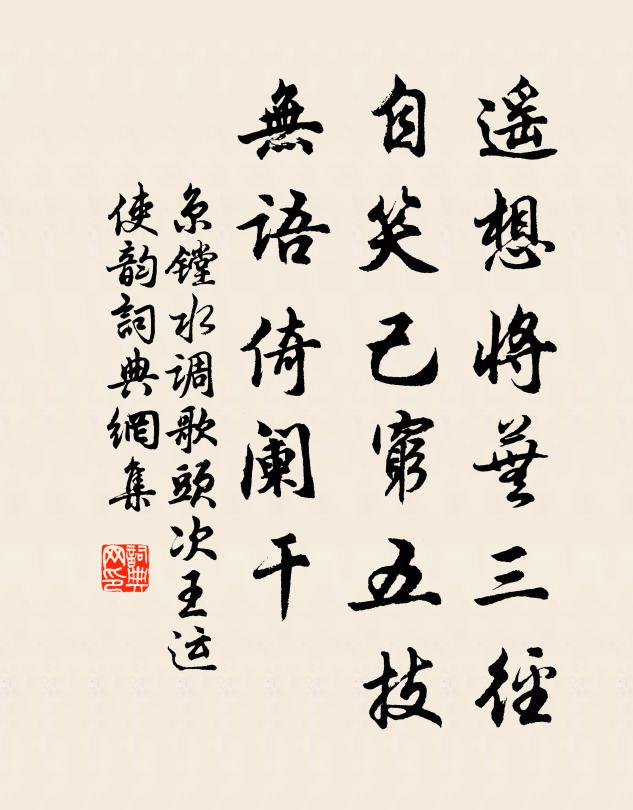 遥想將蕪三徑
自笑已窮五技
無語倚阑干
京镗水调歌頭次王运
使韵詞典網集
詞典网印